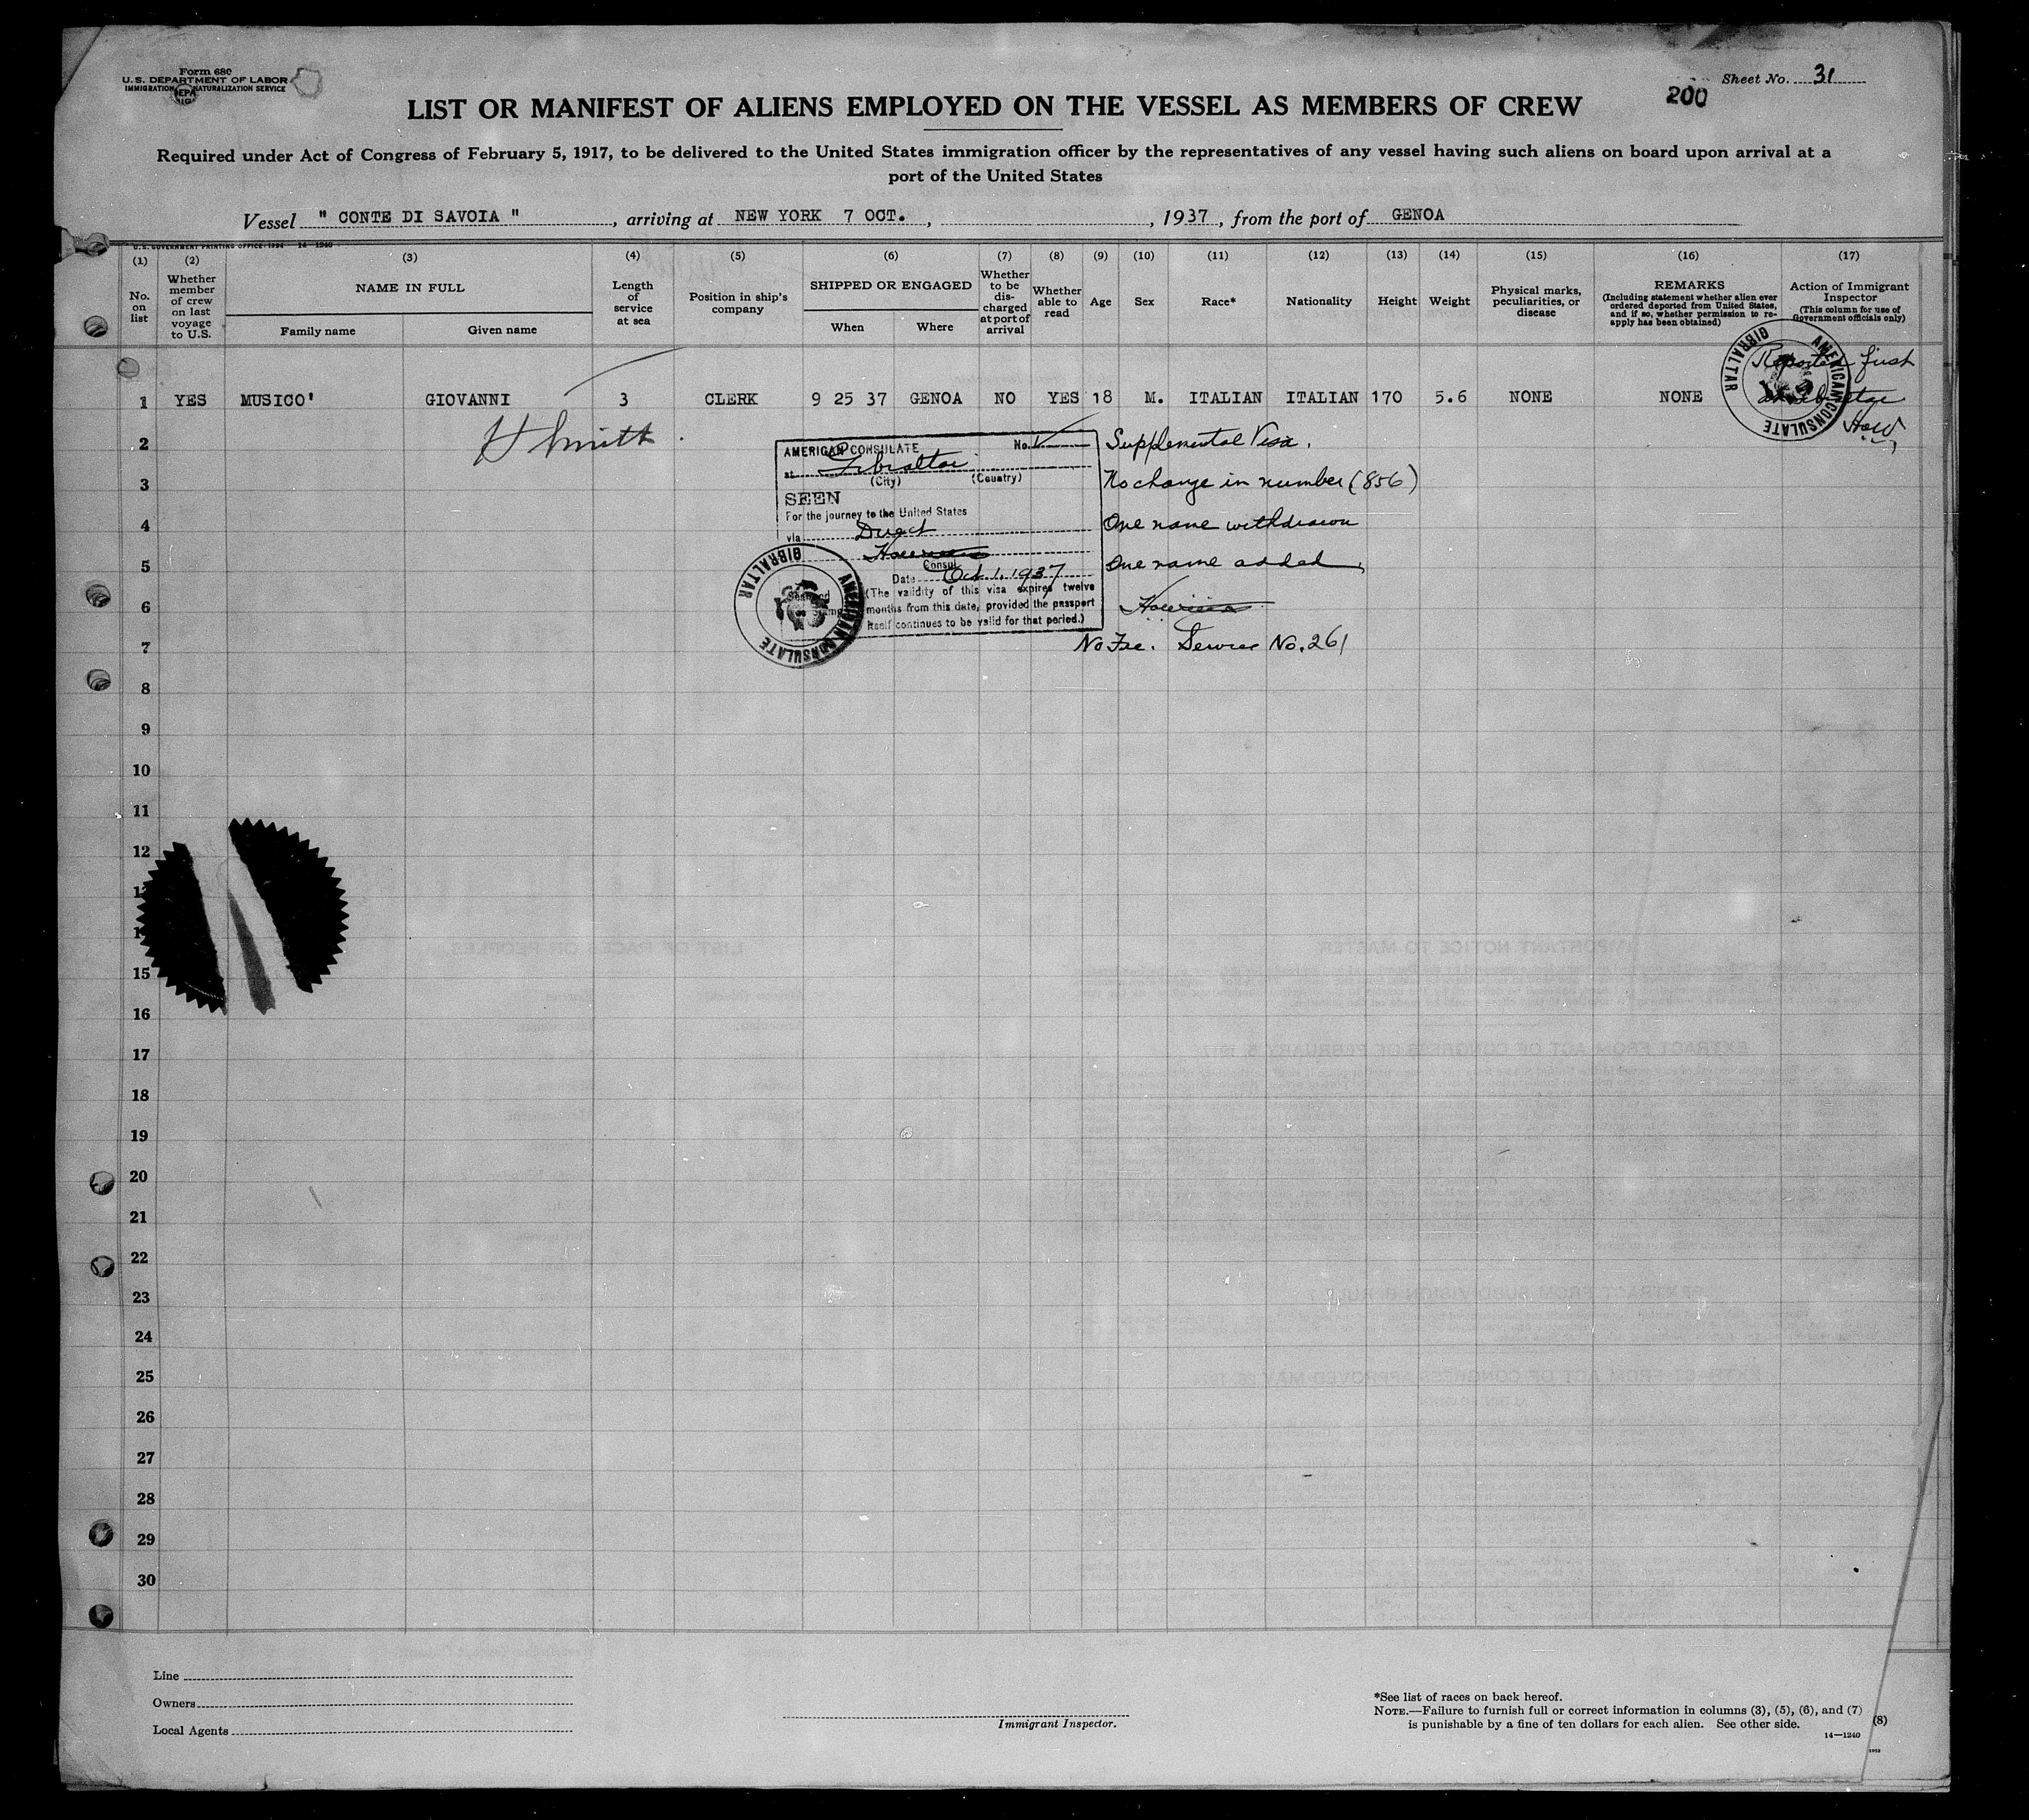 Form 680
U.S. DEPARTMENT OF LABOR
IMMIGRATION NATURALIZATION SERVICE
Sheet No. 31
200
LIST OR MANIFEST OF ALIENS EMPLOYED ON THE VESSEL AS MEMBERS OF CREW
Required under Act of Congress of February 5, 1917, to be delivered to the United States immigration officer by the representatives of any vessel having such aliens on board upon arrival at a
port of the United States
Vessel " CONTE DI SAVOIA ", arriving at NEW YORK 7 OCT., , 1937, from the port of GENOA
U.S. GOVERNMENT PRINTING OFFICE: 1934 14—1240
(1) (2) (3) (4) (5) (6) (7) (8) (9) (10) (11) (12) (13) (14) (15) (16) (17)
No. on list
Whether member of crew on last voyage to U.S.
NAME IN FULL
Family name
Given name
Length of service at sea
Position in ship's company
SHIPPED OR ENGAGED
When
Where
Whether to be discharged at port of arrival
Whether able to read
Age
Sex
Race*
Nationality
Height
Weight
Physical marks, peculiarities, or disease
REMARKS
(Including statement whether alien ever ordered deported from United States, and if so, whether permission to re-apply has been obtained)
Action of Immigrant Inspector
(This column for use of Government officials only)
1 YES MUSICO' GIOVANNI 3 CLERK 9 25 37 GENOA NO YES 18 M. ITALIAN ITALIAN 170 5.6 NONE NONE
first
AMERICAN CONSULATE
GIBRALTAR
H Smith
AMERICAN CONSULATE No. 1
at Gibraltar
(City) (Country)
SEEN
For the journey to the United States
via Direct
Consul
Date Oct. 1, 1937
(The validity of this visa expires twelve
months from this date, provided the passport
itself continues to be valid for that period.)
AMERICAN CONSULATE
GIBRALTAR
Supplemental Visa.
No change in number (856)
One name withdrawn
One name added
No Fee. Service No. 261
2
3
4
5
6
7
8
9
10
11
12
15
16
17
18
19
20
21
22
23
24
25
26
27
28
29
30
Line
Owners
Local Agents
Immigrant Inspector.
*See list of races on back hereof.
NOTE.—Failure to furnish full or correct information in columns (3), (5), (6), and (7)
is punishable by a fine of ten dollars for each alien. See other side.
14—1240
(8)